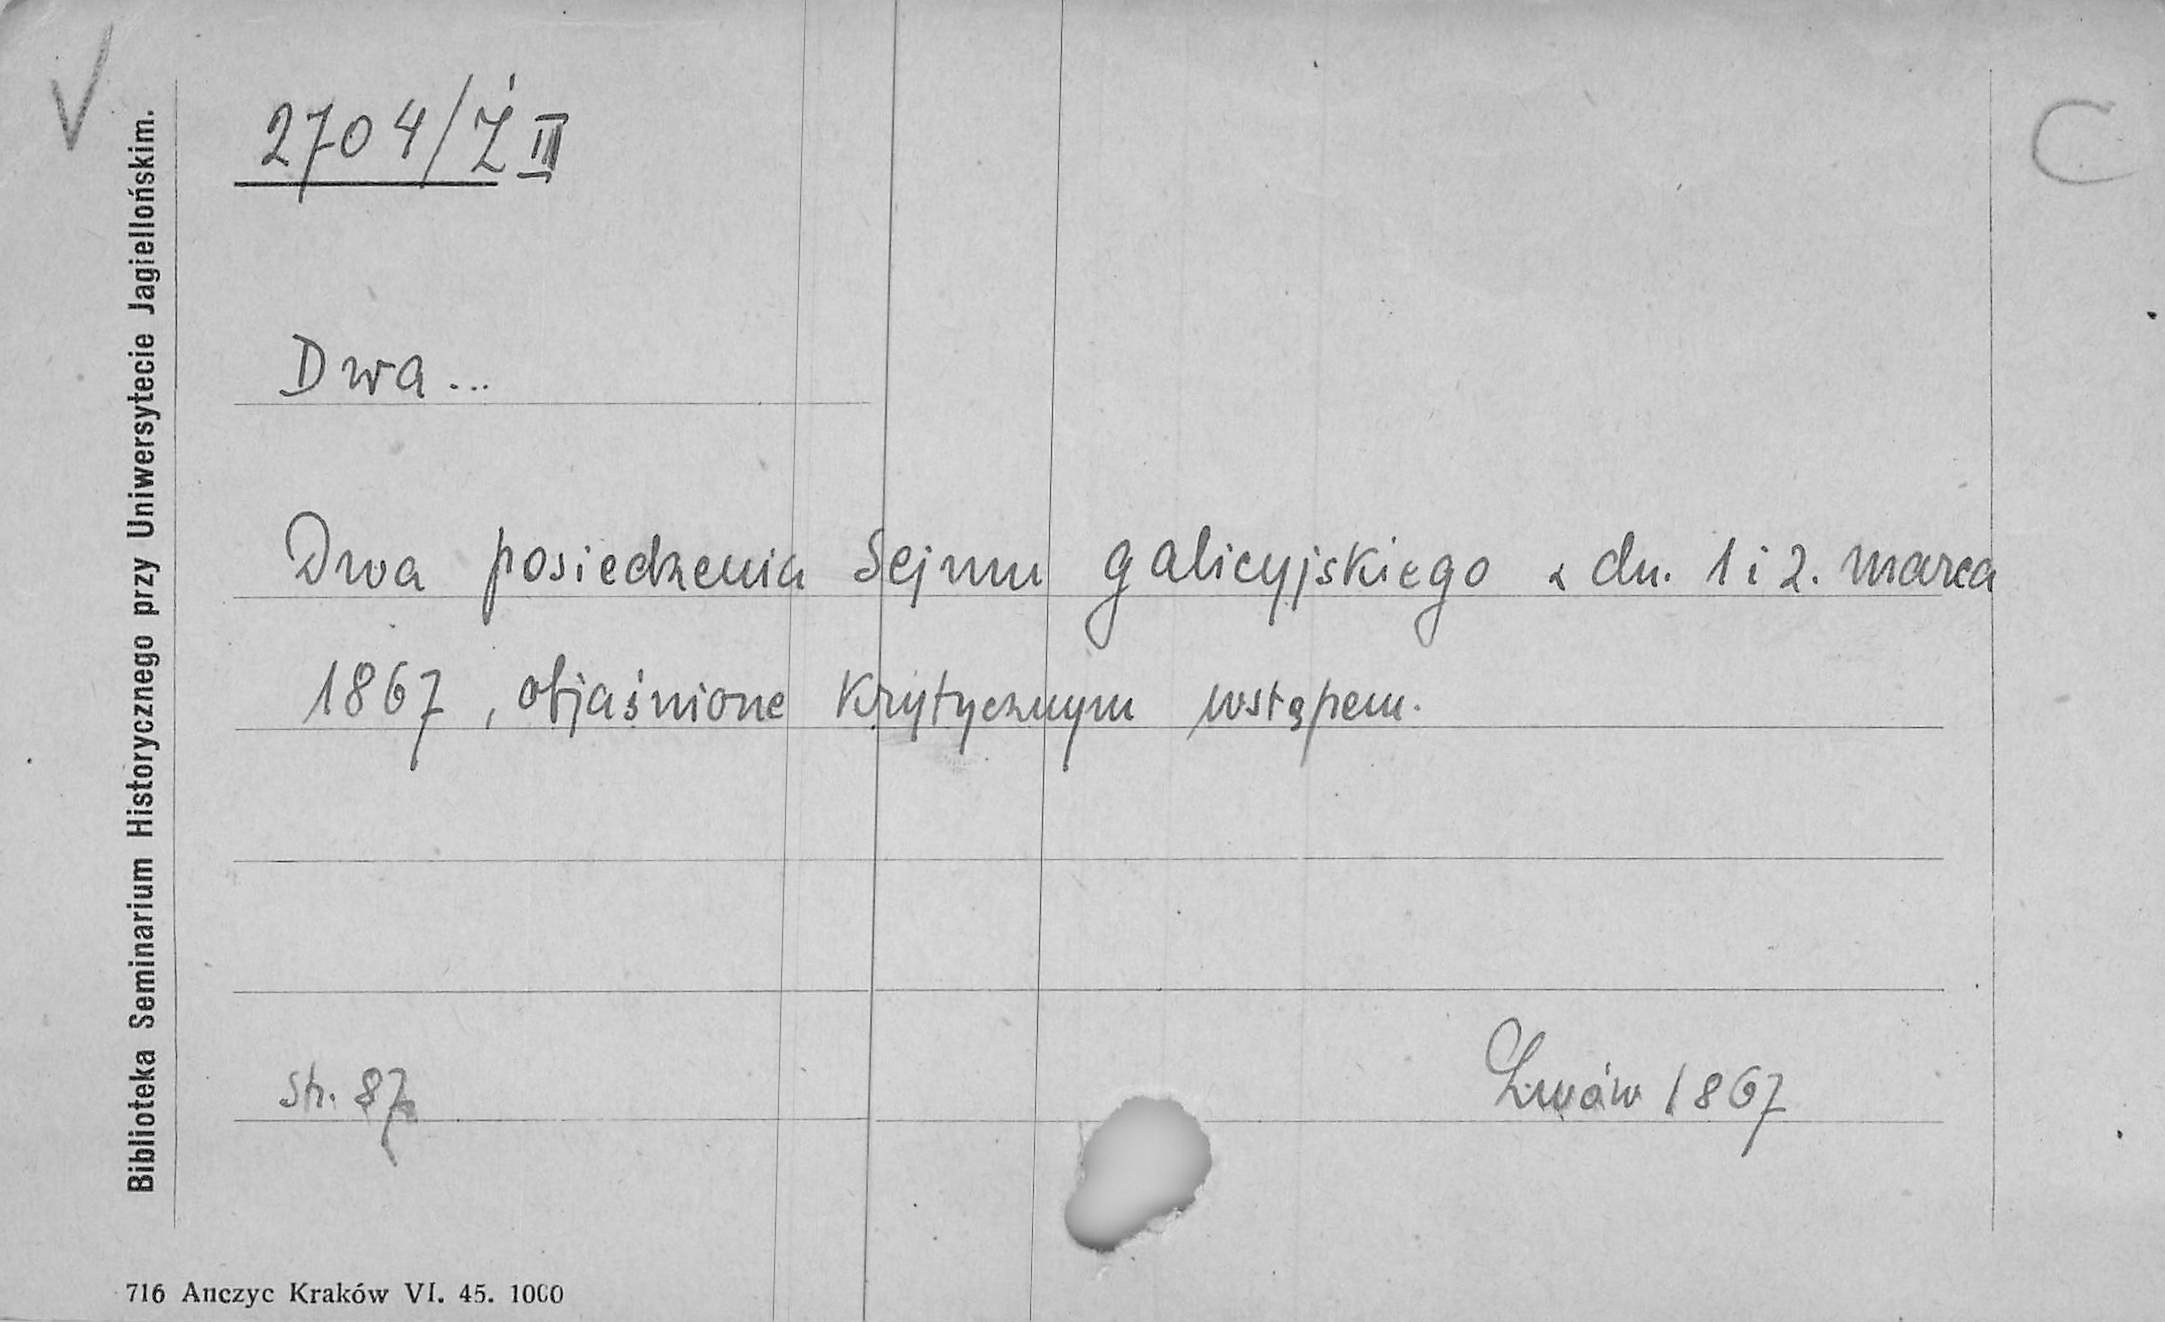 V
C
2704/Ż III
Dwa...
Dwa posiedzenia Sejmu galicyjskiego z dn. 1 i 2. marca
1867, objaśnione krytycznym wstępem.
str. 87
Lwów 1867
Biblioteka Seminarium Historycznego przy Uniwersytecie Jagiellońskim.
716 Anczyc Kraków VI. 45. 1000